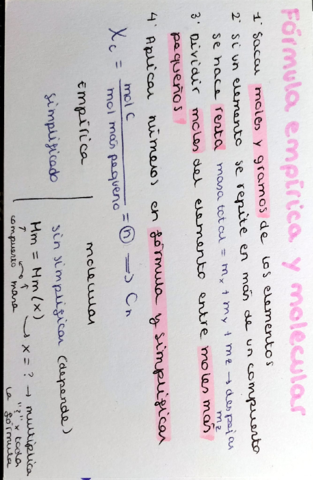 Fórmula empírica y molecular
1. Sacar moles y gramos de los elementos
2. Si un elemento se repite en más de un compuesto
se hace resta masa total = mx + my + mz → despejas
mz
3. Dividir moles del elemento entre moles más
pequeños
4. Aplicar números en fórmula y simplificar
Xc = mol C / mol más pequeño = n ⟹ Cn
empírica | molecular
simplificado | sin simplificar (depende)
Mm = Mm (x)
↳ x = ? → multiplica
"?" x toda
la fórmula
compuesto masa